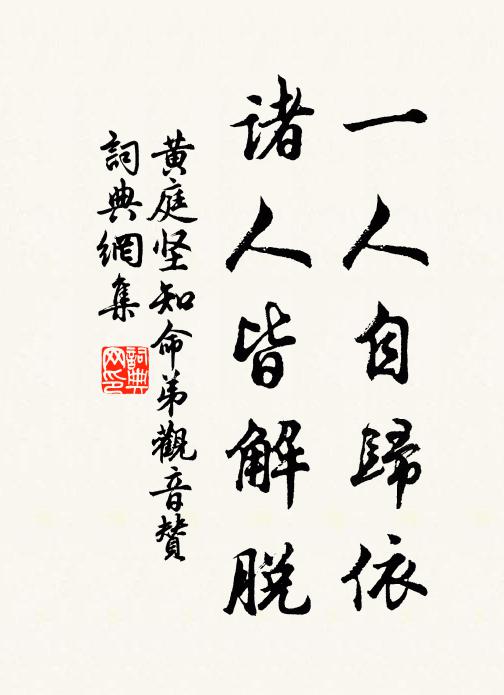 一人自歸依
诸人皆解脱
黄庭坚知命弟觀音贊
詞典網集
詞典网印